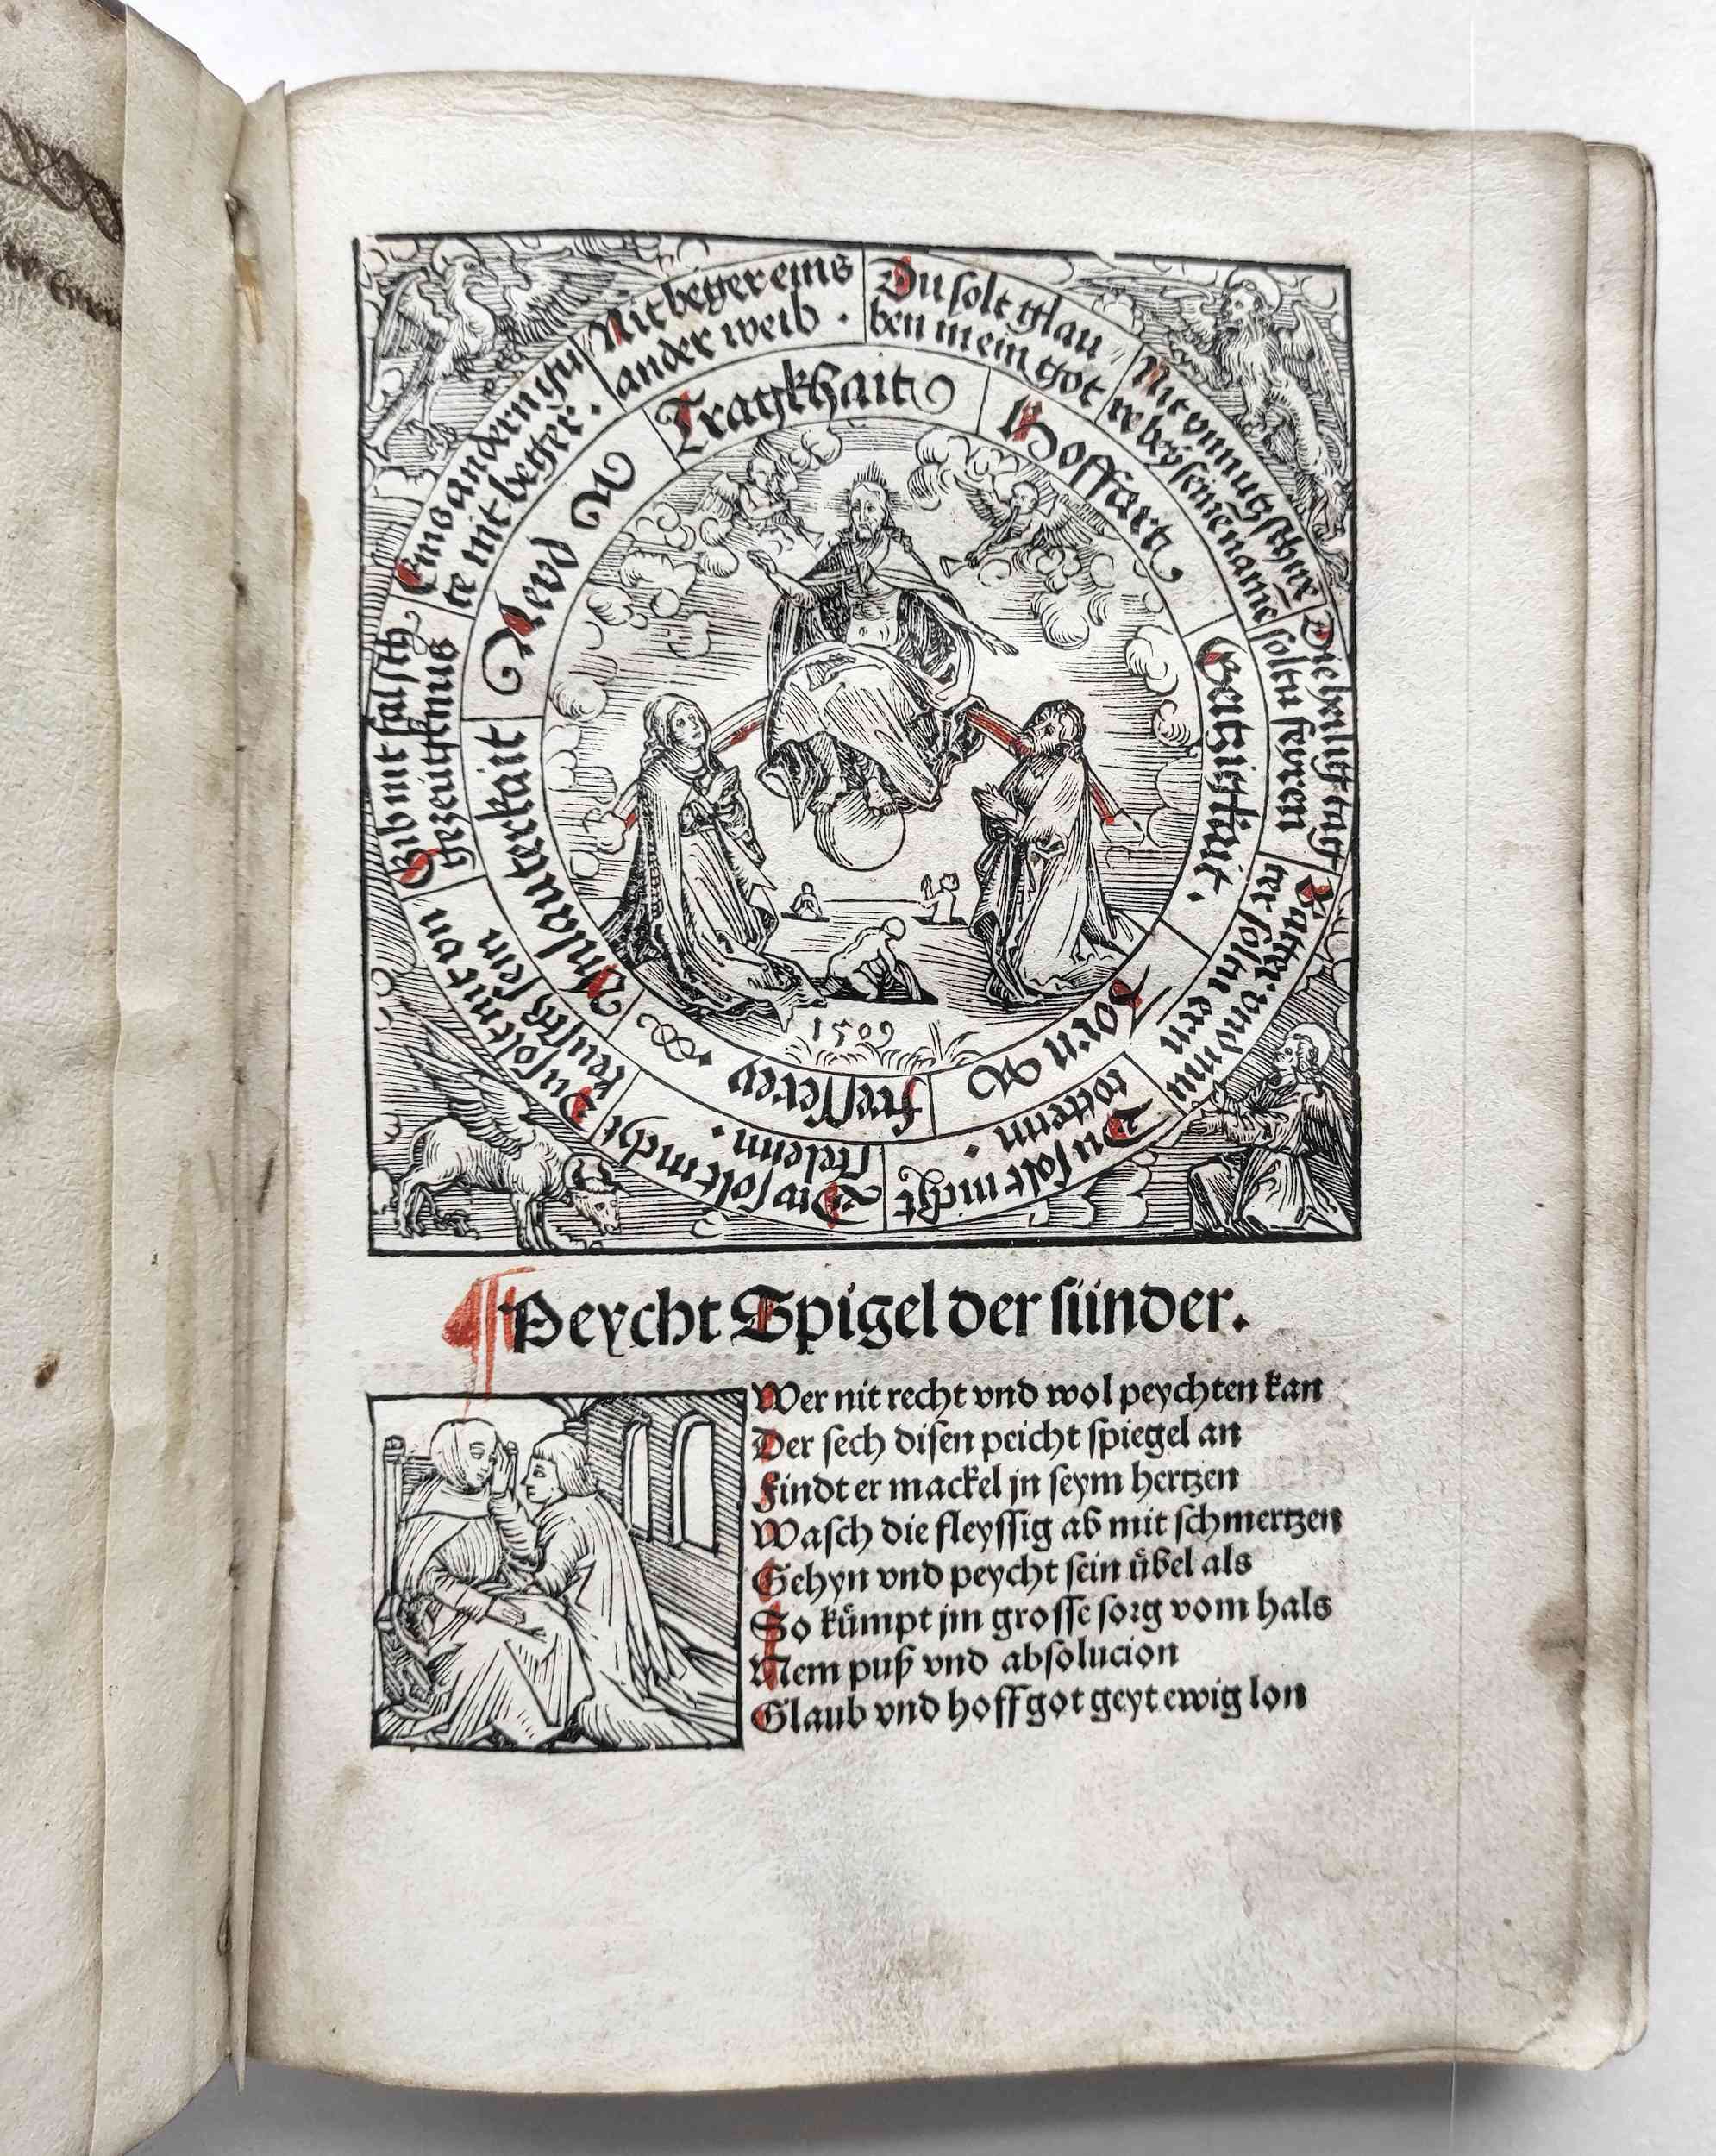 Du solt glau
ben in ein got
Nit vnnutz schwe
re bey seinē namē
Die heilig tag
soltu feyren
Vatter vnd mu
ter soltu ern
Du solt nicht
tottenn .
Du solt nicht
stelenn .
Du solt nit vn
keusch sein
Gib nit falsch
gezeugknus
Eins andern gu
te nit beger .
Nit beger eins
ander weib .
Hoffart
Geitzigkait .
Zorn
fresserey
Vnlauterkait
Neyd
Tragkhait
1509
¶ Peycht Spigel der sünder.
Wer nit recht vnd wol peychten kan
Der sech disen peicht spiegel an
Findt er mackel jn seym hertzen
Wasch die fleyssig ab mit schmertzen
Gehyn vnd peycht sein uͤbel als
So kuͤmpt jm grosse sorg vom hals
Nem puß vnd absolucion
Glaub vnd hoff got geyt ewig lon